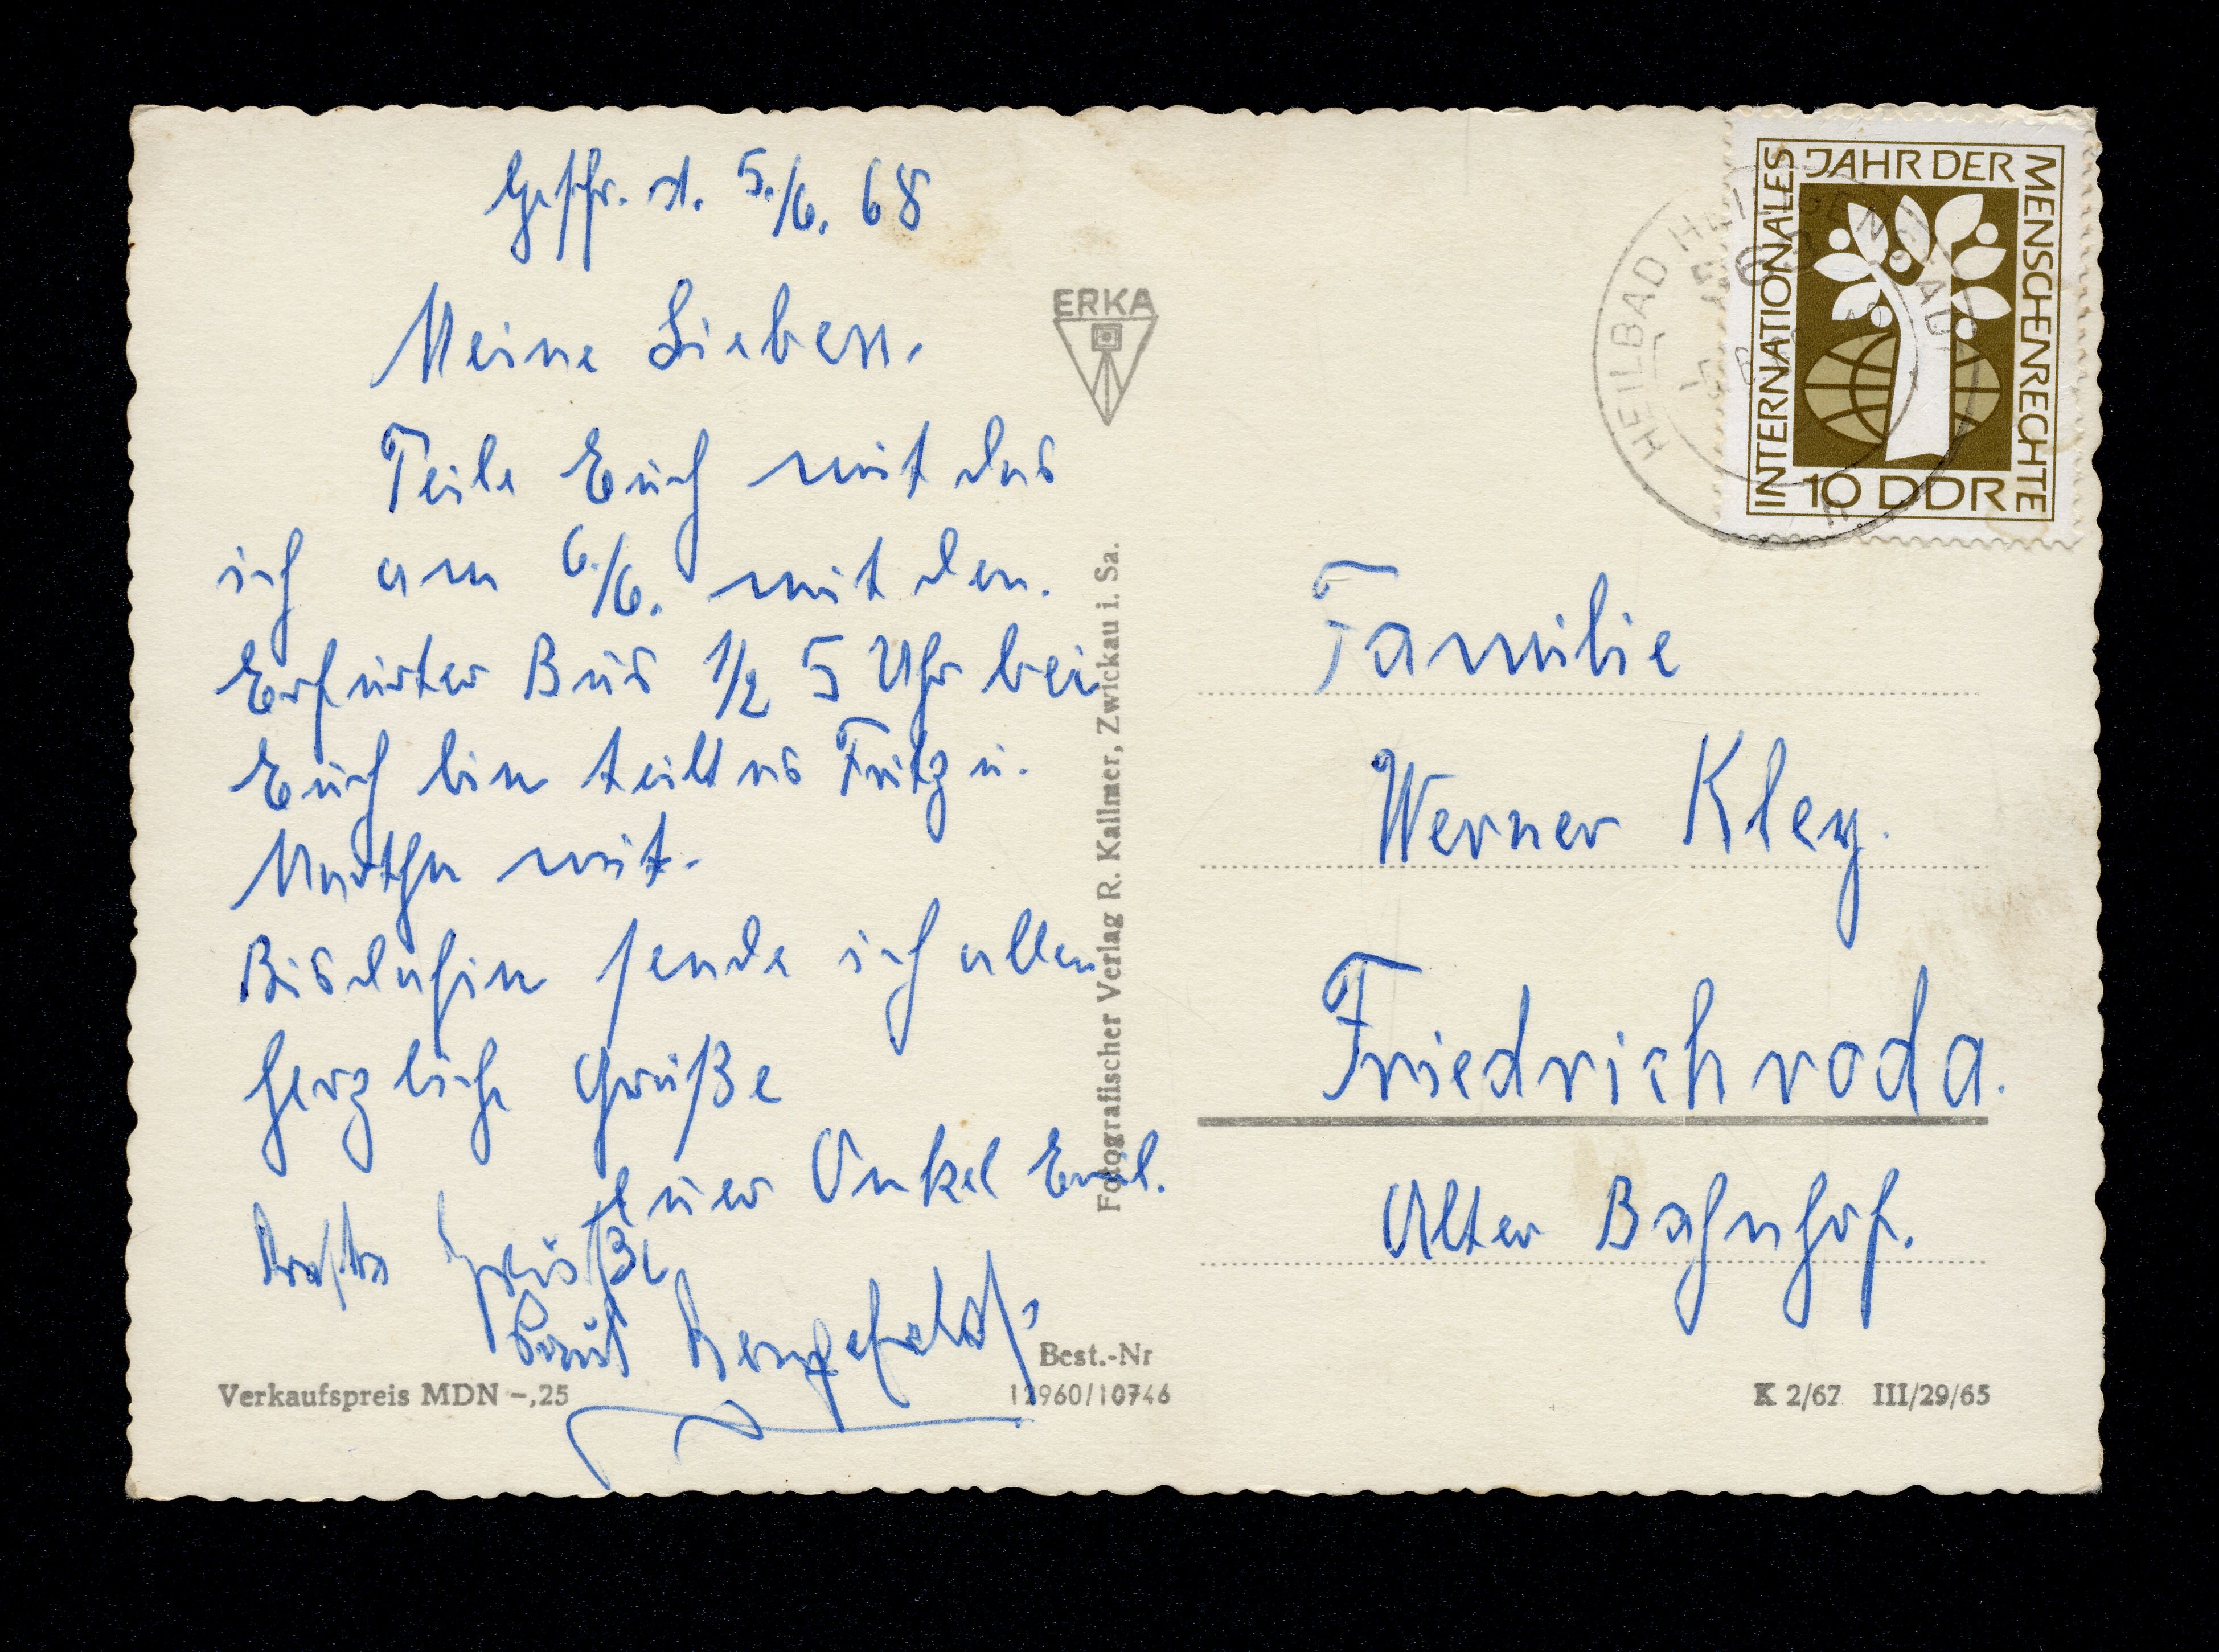 d. 5./6. 68
Meine Lieben.
Teile Euch mit das
ich am 6./6. mit den.
Erfurter Bus 1/2 5 Uhr bei
Euch bin teilt es Fritz u.
Martha mit.
Bis dahin sende ich allen
herzliche Grüße
Euer Onkel Emil.
Grüße
ERKA
Fotografischer Verlag R. Kallmer, Zwickau i. Sa.
Verkaufspreis MDN -,25
Best.-Nr
12960/10746
INTERNATIONALES JAHR DER MENSCHENRECHTE
10 DDR
HEILBAD HEILIGENSTADT
Familie
Werner Kley.
Friedrichroda.
Alter Bahnhof.
K 2/67 III/29/65